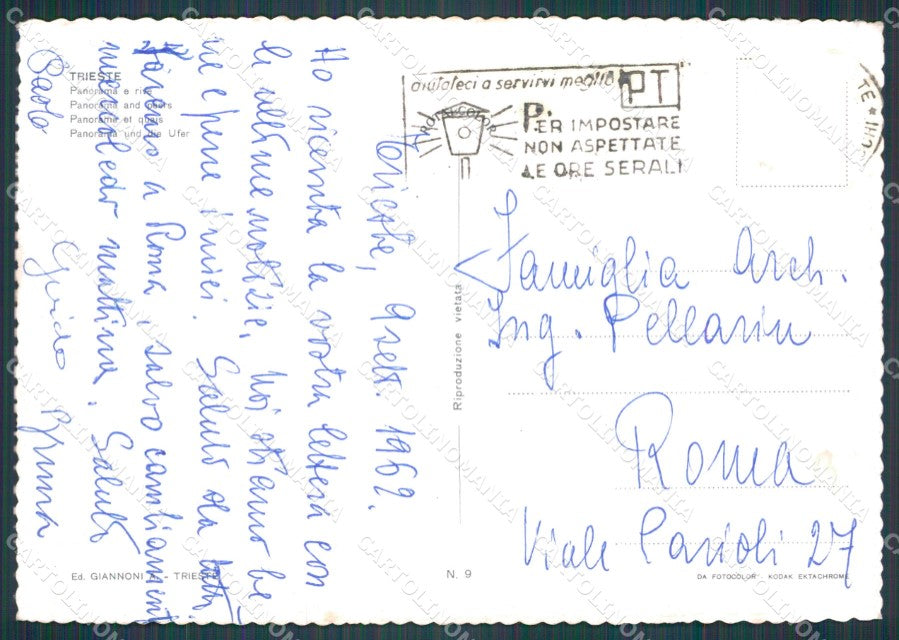 TRIESTE
Panorama e rive
Panorama and quers
Panorama et quais
Panorama und die Ufer
aiutateci a servirvi meglio
PT
PER IMPOSTARE
NON ASPETTATE
LE ORE SERALI
TE * (TS)
Trieste, 9 sett. 1969.
Ho ricevuta la vostra lettera con
le ultime notizie. Noi stiamo be
ne e pure i miei. Saluto da tutti.
Saremo a Roma, salvo cambiamenti
mercoledì mattina. Saluti
Guido Bruna
Paolo
Famiglia Arch.
Ing. Pellarin
Roma
Viale Parioli 27
Riproduzione vietata
Ed. GIANNONI A. - TRIESTE
N. 9
DA FOTOCOLOR KODAK EKTACHROME
CARTOLINOMANIA